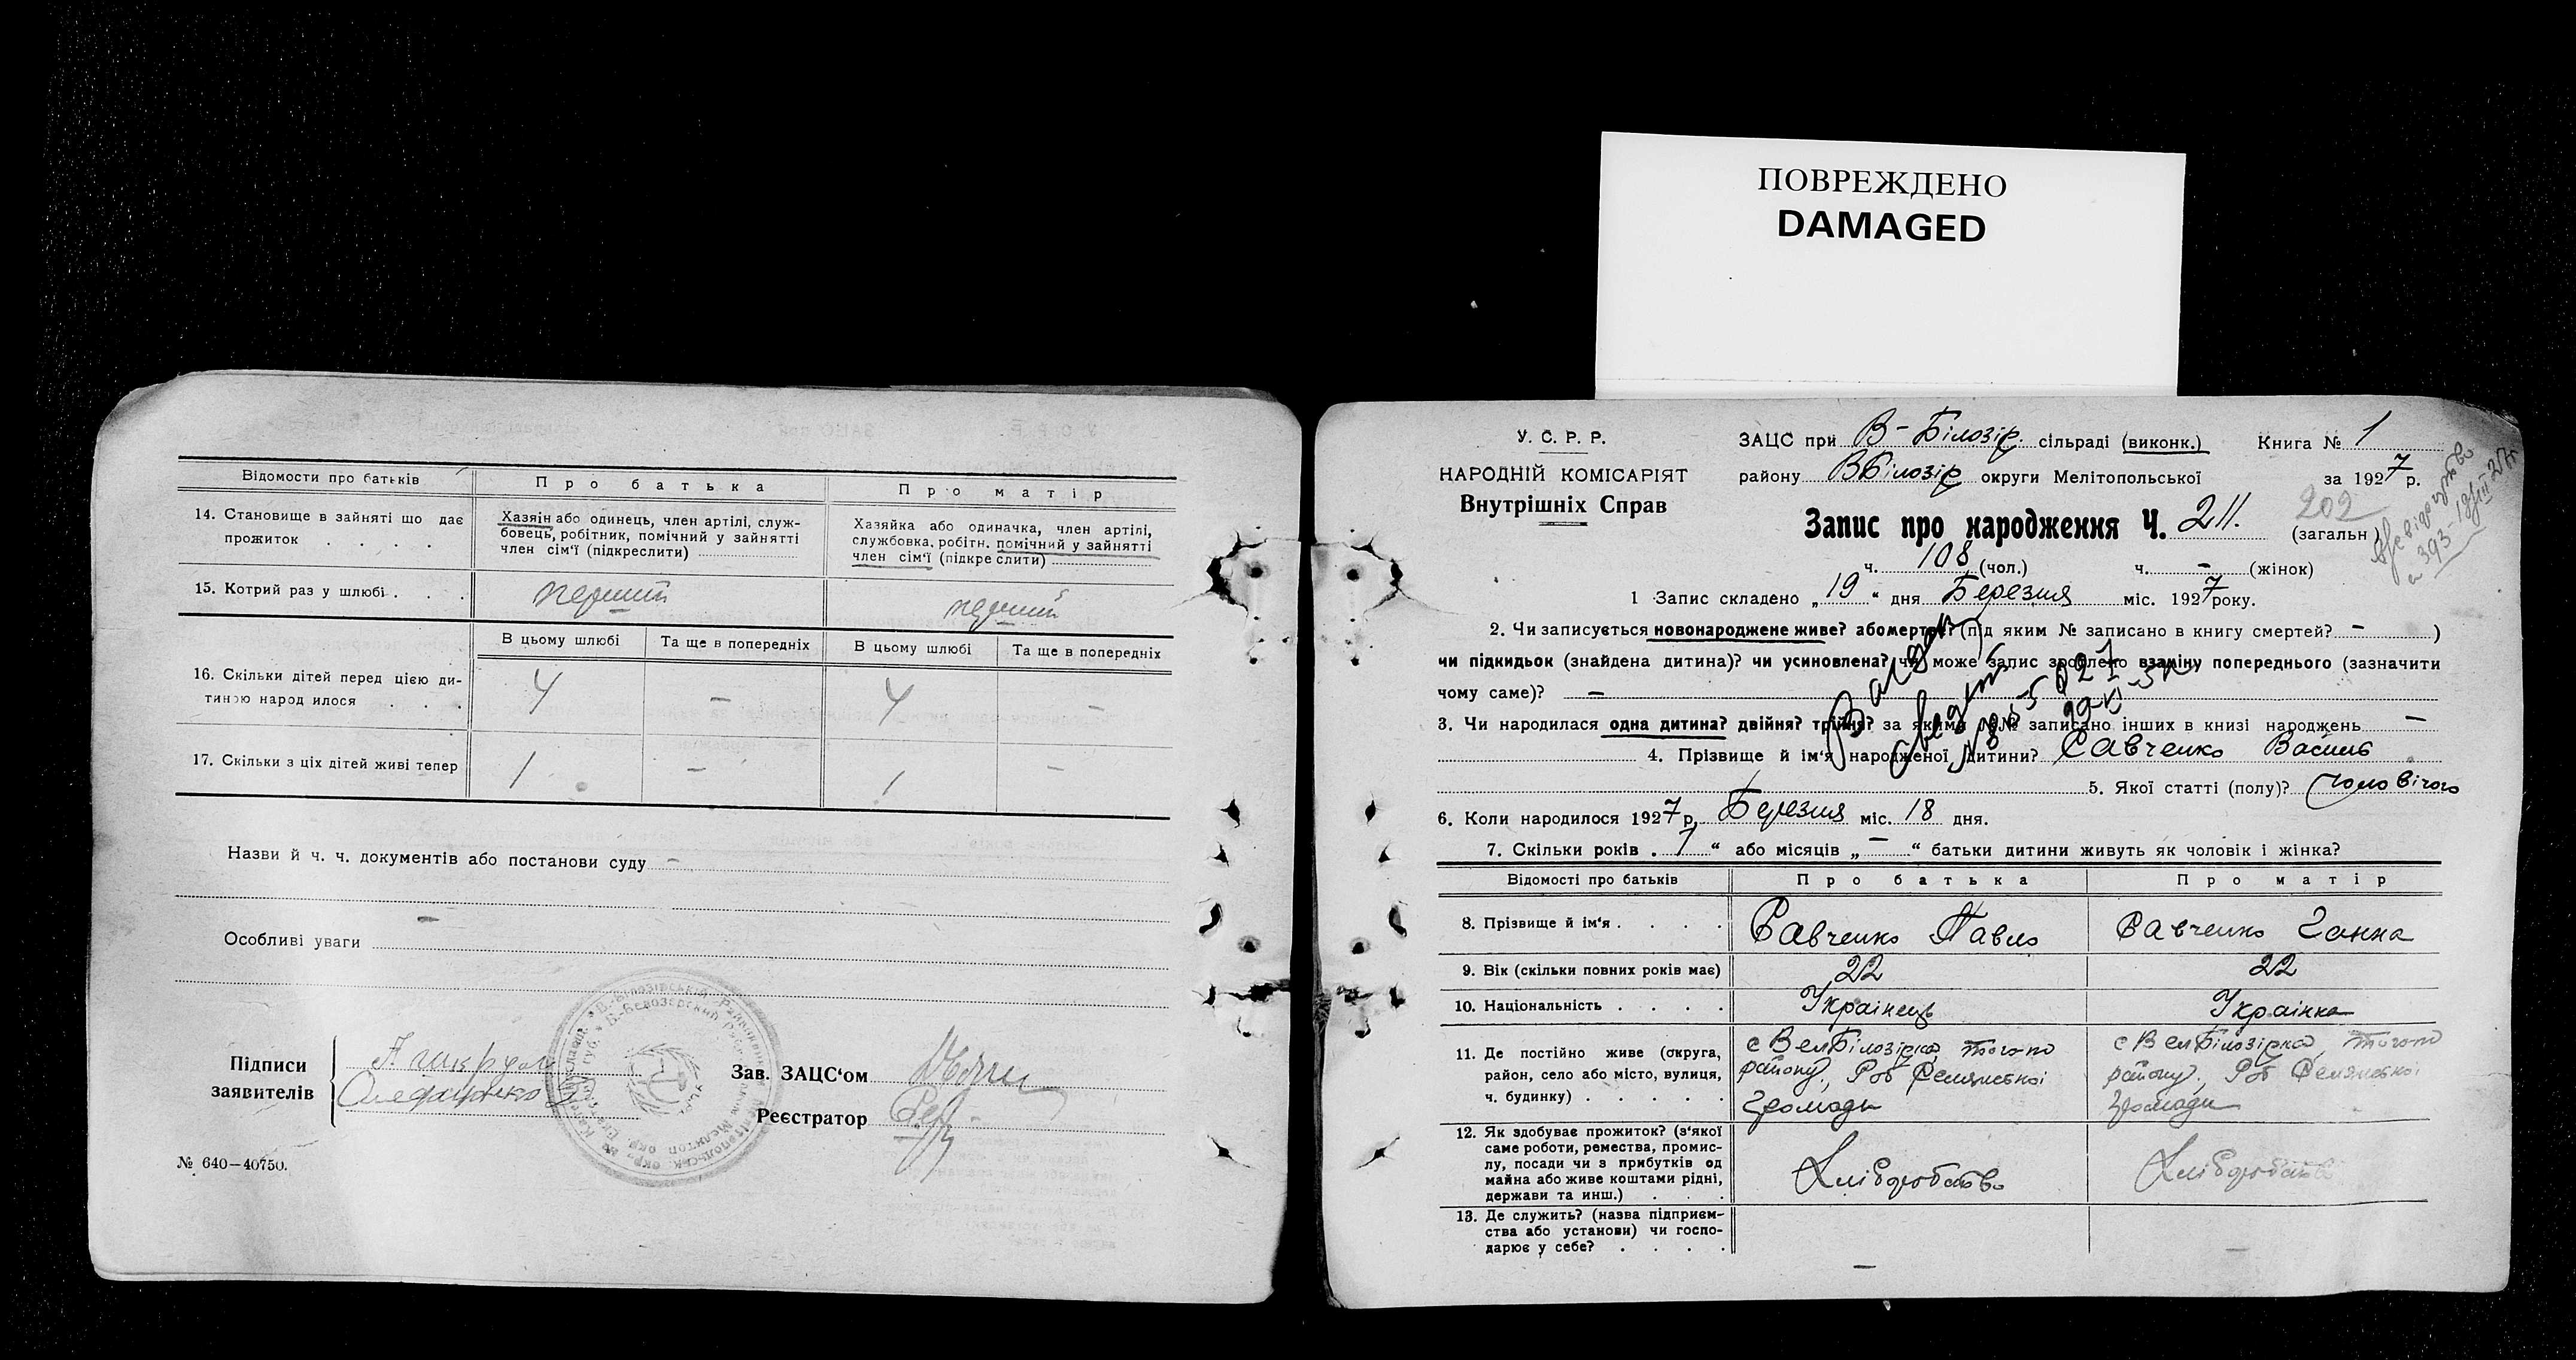 ПОВРЕЖДЕНО
DAMAGED
Відомости про батьків
Про батька
Про матір
14. Становище в зайняті що дає прожиток . . . .
Хазяін або одинець, член артілі, служ-
бовець, робітник, помічний у зайнятті
член сім'ї (підкреслити)
Хазяйка або одиначка, член артілі,
службовка, робітн. помічний у зайнятті
член сім'ї (підкреслити)
15. Котрий раз у шлюбі . . .
перший
перший
В цьому шлюбі
Та ще в попередніх
В цьому шлюбі
Та ще в попередніх
16. Скільки дітей перед цією ди-
тиною народ илося . . .
4 – 4 –
17. Скільки з ціх дітей живі тепер
1 – 1 –
Назви й ч. ч. документів або постанови суду –
–
Особливі уваги
Підписи
заявителів
Зав. ЗАЦС'ом
Реєстратор
№ 640—40750.
У. С. Р. Р.
НАРОДНІЙ КОМІСАРІЯТ
Внутрішніх Справ
ЗАЦС при В-Білозір. сільраді (виконк.) Книга № 1
району ВБілозір округи Мелітопольської за 1927 р.
202
Запис про народження Ч. 211. (загальн)
393
ч. 108 (чол.) ч. – (жінок)
1 Запис складено „19“ дня Березня міс. 1927 року.
2. Чи записується новонароджене живе? або мертве? (під яким № записано в книгу смертей? – )
чи підкидьок (знайдена дитина)? чи усиновлена? чи може запис зроблено взаміну попереднього (зазначити
чому саме)? –
3. Чи народилася одна дитина? двійня? трійня? за якими №№ записано інших в книзі народжень –
4. Прізвище й ім'я народженої дитини? Савченко Василь
5. Якої статті (полу)? чоловічого
6. Коли народилося 1927 р. Березня міс. 18 дня.
7. Скільки років . 7 “ або місяців „ – “ батьки дитини живуть як чоловік і жінка?
Відомості про батьків
Про батька
Про матір
8. Прізвище й ім'я . . . .
Савченко Павло
Савченко Ганна
9. Вік (скільки повних років має)
22
22
10. Національність . . . .
Українець
Українка
11. Де постійно живе (округа,
район, село або місто, вулиця,
ч. будинку) . . . . .
с ВелБілозірка того-ж
району, Роб Селянської
громади
с ВелБілозірка того-ж
району, Роб Селянської
громади
12. Як здобуває прожиток? (з'якої
саме роботи, ремества, промис-
лу, посади чи з прибутків од
майна або живе коштами рідні,
держави та инш.) . . .
Хліборобство
Хліборобство
13. Де служить? (назва підприєм-
ства або установи) чи госпо-
дарює у себе? . . . .
–